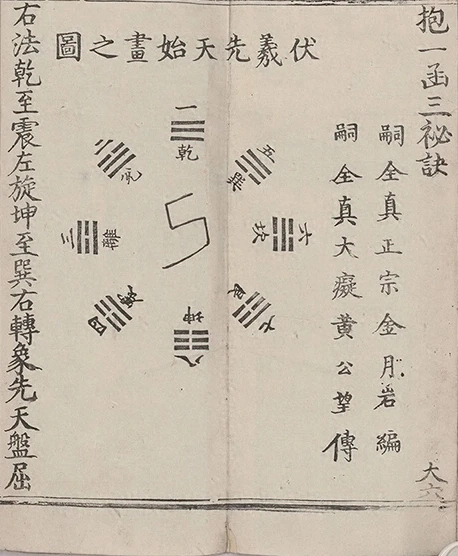 抱一函三祕訣
嗣全真正宗金月岩編
嗣全真大癡黃公望傳
伏羲先天始畫之圖
一
乾
五
巽
六
坎
七
艮
八
坤
四
三
離
二
右法乾至震左旋坤至巽右轉象先天盤屈
大六